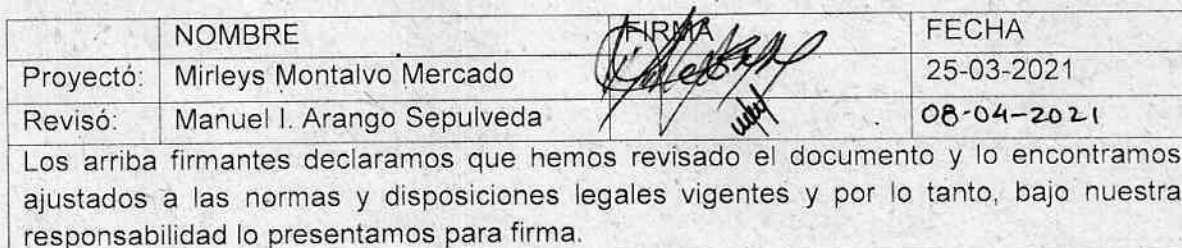 NOMBRE FIRMA FECHA
Proyectó: Mirleys Montalvo Mercado 25-03-2021
Revisó: Manuel I. Arango Sepulveda 08-04-2021
Los arriba firmantes declaramos que hemos revisado el documento y lo encontramos
ajustados a las normas y disposiciones legales vigentes y por lo tanto, bajo nuestra
responsabilidad lo presentamos para firma.